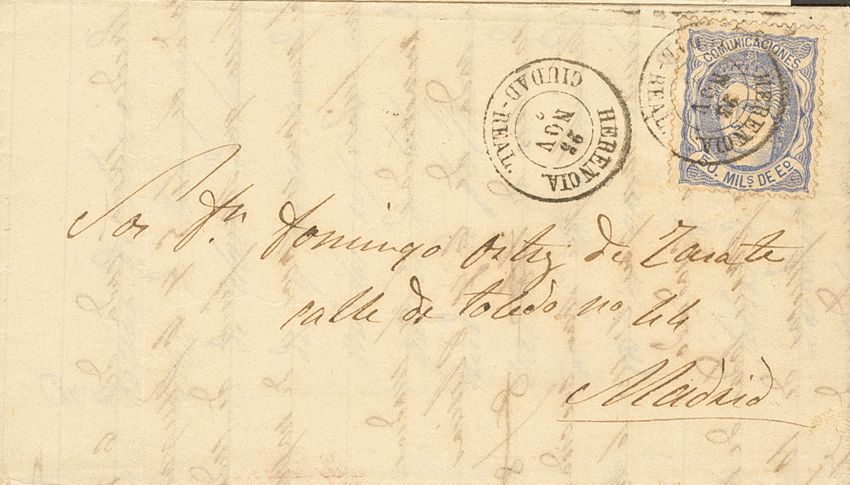 COMUNICACIONES
50. MILS DE Eº
HERENCIA.
25
NOV
CIUDAD-REAL.
HERENCIA.
25
NOV
CIUDAD-REAL.
Sor Dn Domingo Ortiz de Zarate
calle de Toledo no 44
Madrid